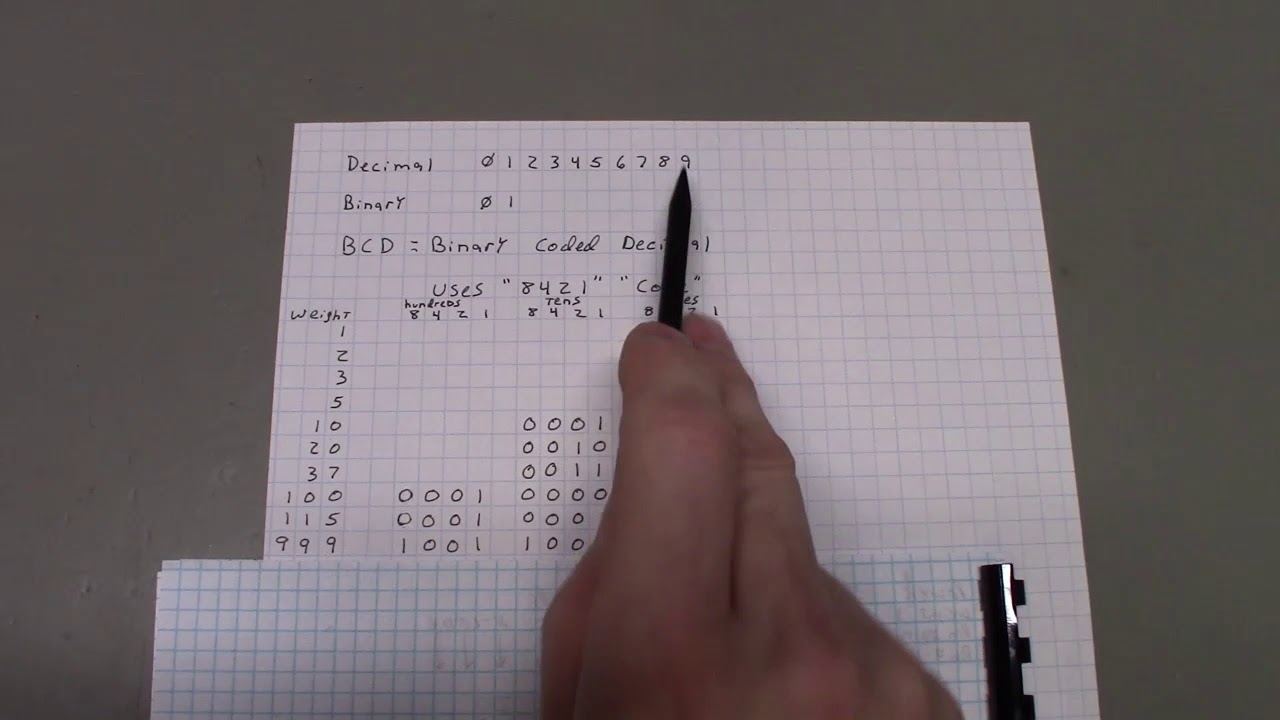 Decimal Ø 1 2 3 4 5 6 7 8 9
Binary Ø 1
BCD = Binary Coded
Uses "8421"
hundreds Tens
Weight 8 4 2 1 8 4 2 1 8 2 1
1
2
3
5
10 0 0 0 1
20 0 0 1 0
37 0 0 1 1
100 0 0 0 1 0 0 0 0
115 0 0 0 1 0 0 0
999 1 0 0 1 1 0 0